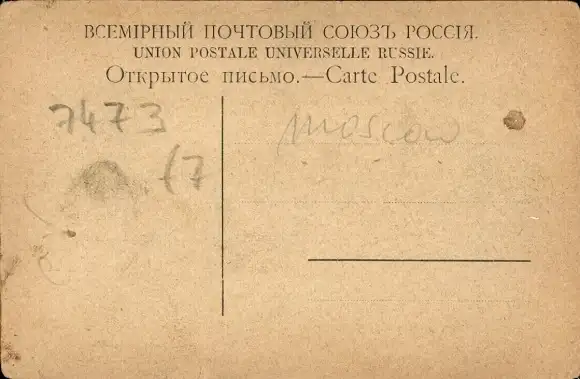 ВСЕМІРНЫЙ ПОЧТОВЫЙ СОЮЗЪ РОССІЯ.
UNION POSTALE UNIVERSELLE RUSSIE.
Открытое письмо.—Carte Postale.
7473
moscow
(7